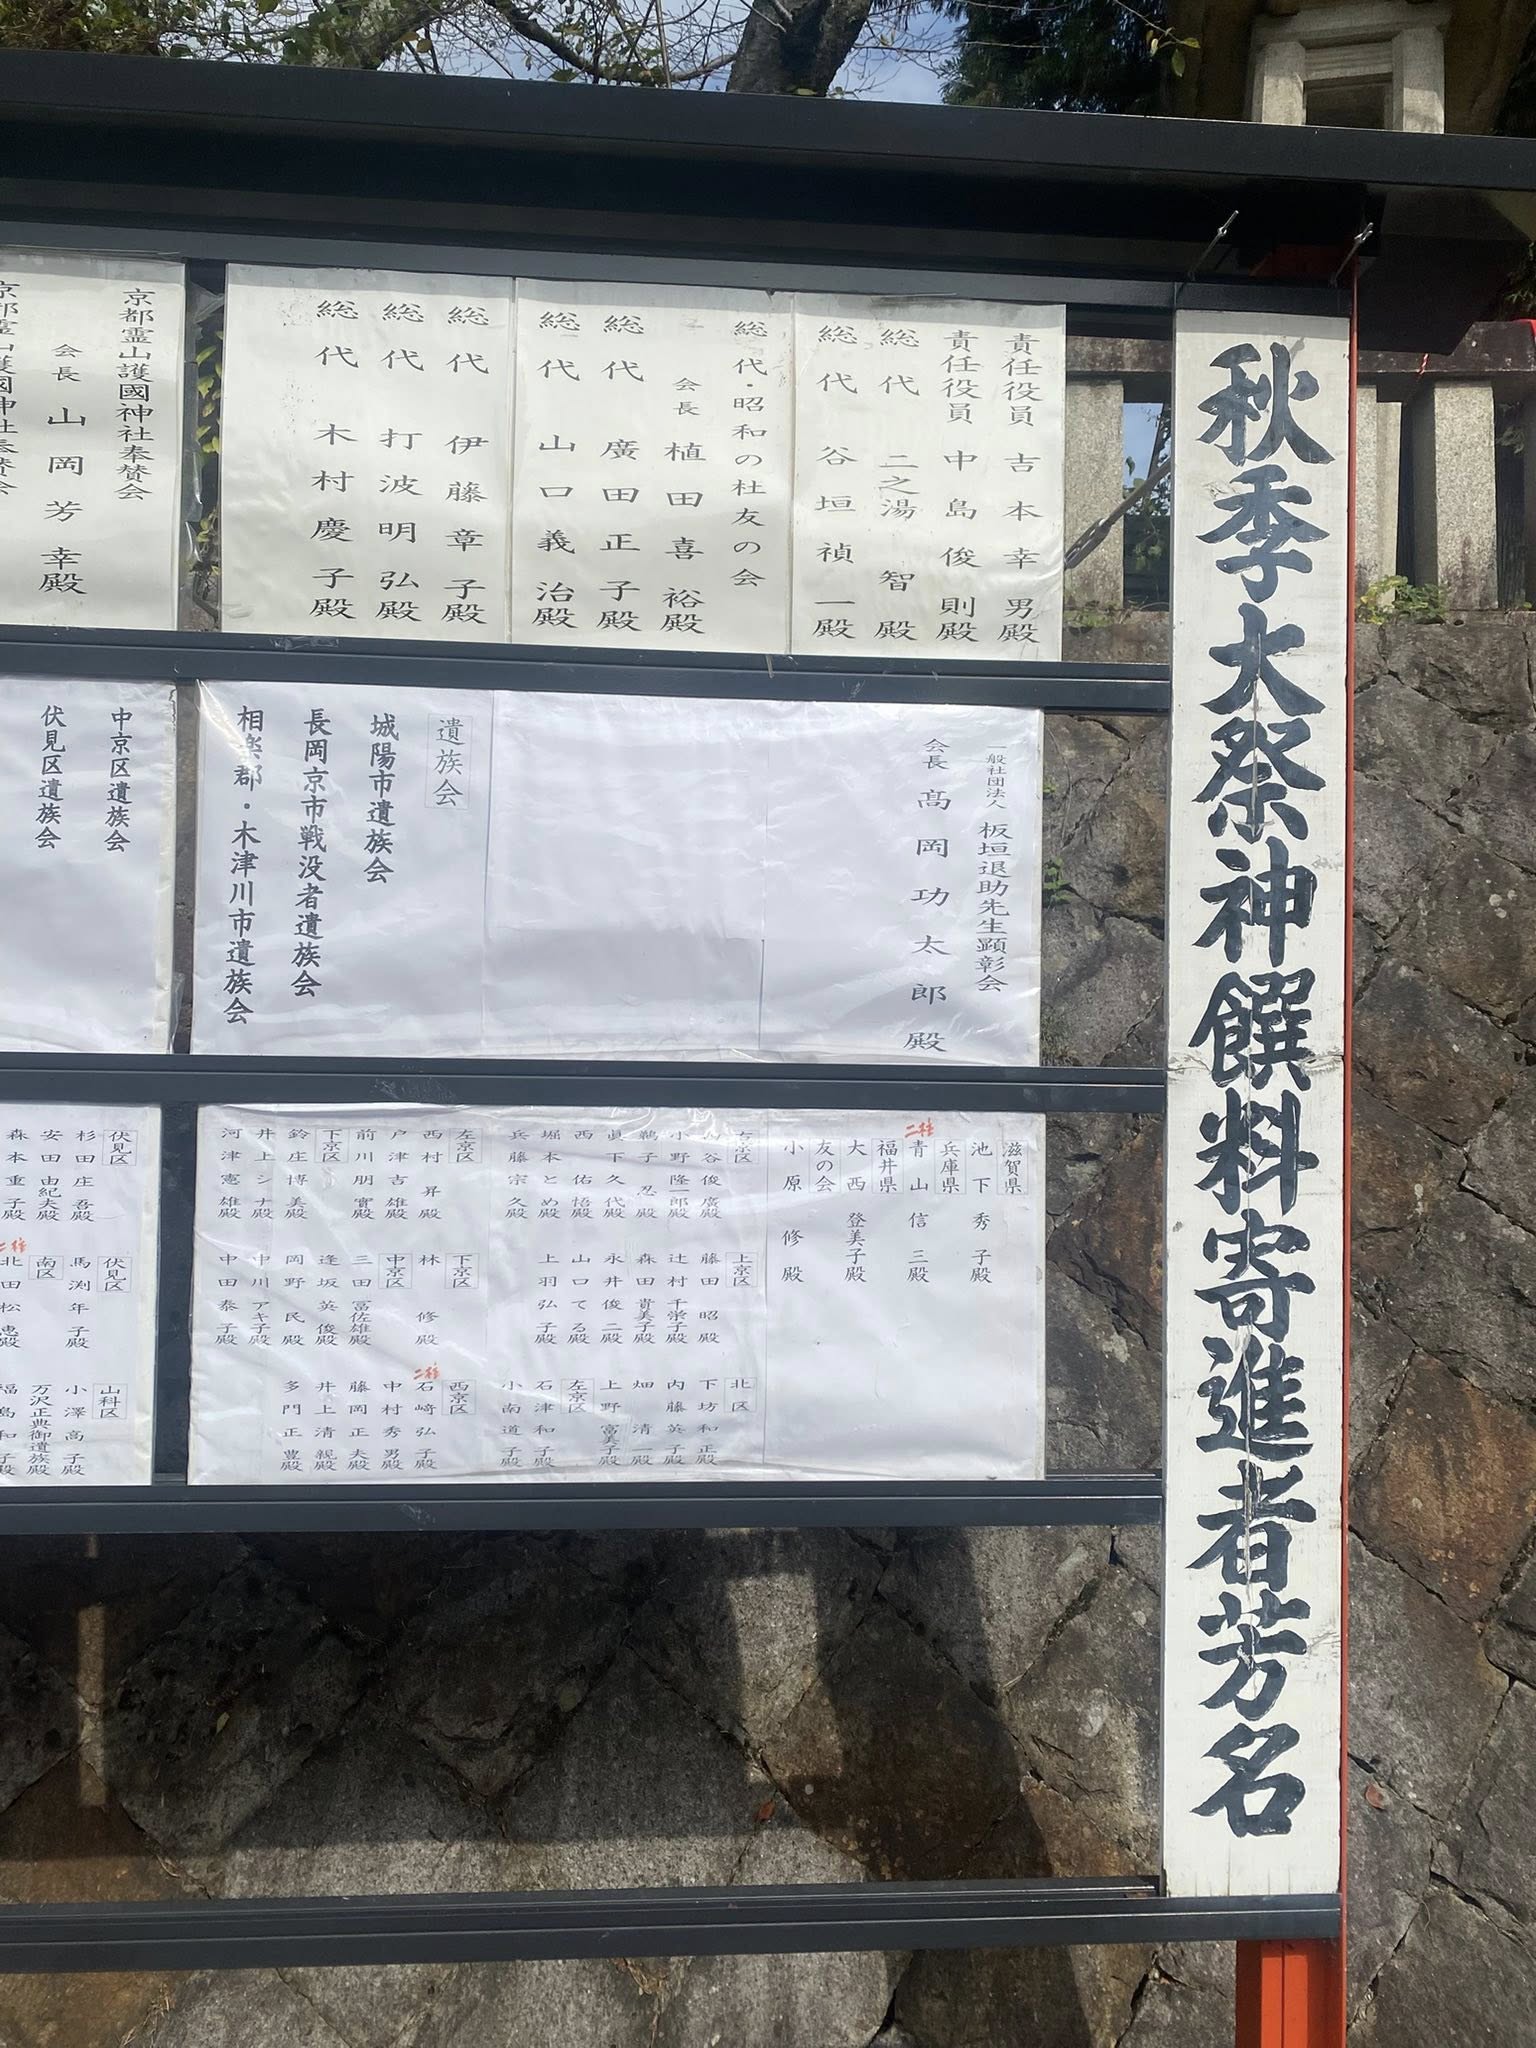 秋季大祭神饌料寄進者芳名
責任役員 吉本幸男殿
責任役員 中島俊則殿
総代 二之湯智殿
総代 谷垣禎一殿
総代・昭和の杜友の会
会長 植田喜裕殿
総代 廣田正子殿
総代 山口義治殿
総代 伊藤章子殿
総代 打波明弘殿
総代 木村慶子殿
京都霊山護國神社奉賛会
会長 山岡芳幸殿
京都霊山護國神社奉賛会
一般社団法人 板垣退助先生顕彰会
会長 髙岡功太郎殿
遺族会
城陽市遺族会
長岡京市戦没者遺族会
相楽郡・木津川市遺族会
中京区遺族会
伏見区遺族会
滋賀県
池下秀子殿
兵庫県
二柱
青山信三殿
福井県
大西登美子殿
友の会
小原修殿
右京区
谷俊廣殿
小野隆一郎殿
鵜子忍殿
眞下久代殿
西佑悟殿
堀本とめ殿
兵藤宗久殿
上京区
藤田昭殿
辻村千栄子殿
森田貴美子殿
永井俊二殿
山口てる殿
上羽弘子殿
北区
下坊和正殿
内藤英子殿
畑清一殿
上野富美子殿
左京区
石津和子殿
小南道子殿
左京区
西村昇殿
戸津吉雄殿
前川朋實殿
下京区
鈴庄博美殿
井上シナ殿
河津憲雄殿
下京区
林修殿
中京区
三田冨佐雄殿
逢坂英俊殿
岡野民殿
中川アキ子殿
中田泰子殿
西京区
二柱
石崎弘子殿
中村秀男殿
藤岡正夫殿
井上清親殿
多門正豊殿
伏見区
杉田庄吾殿
安田由紀夫殿
森本重子殿
伏見区
馬渕年子殿
南区
二柱
北田松恵殿
山科区
小澤高子殿
万沢正典御遺族殿
福島和子殿